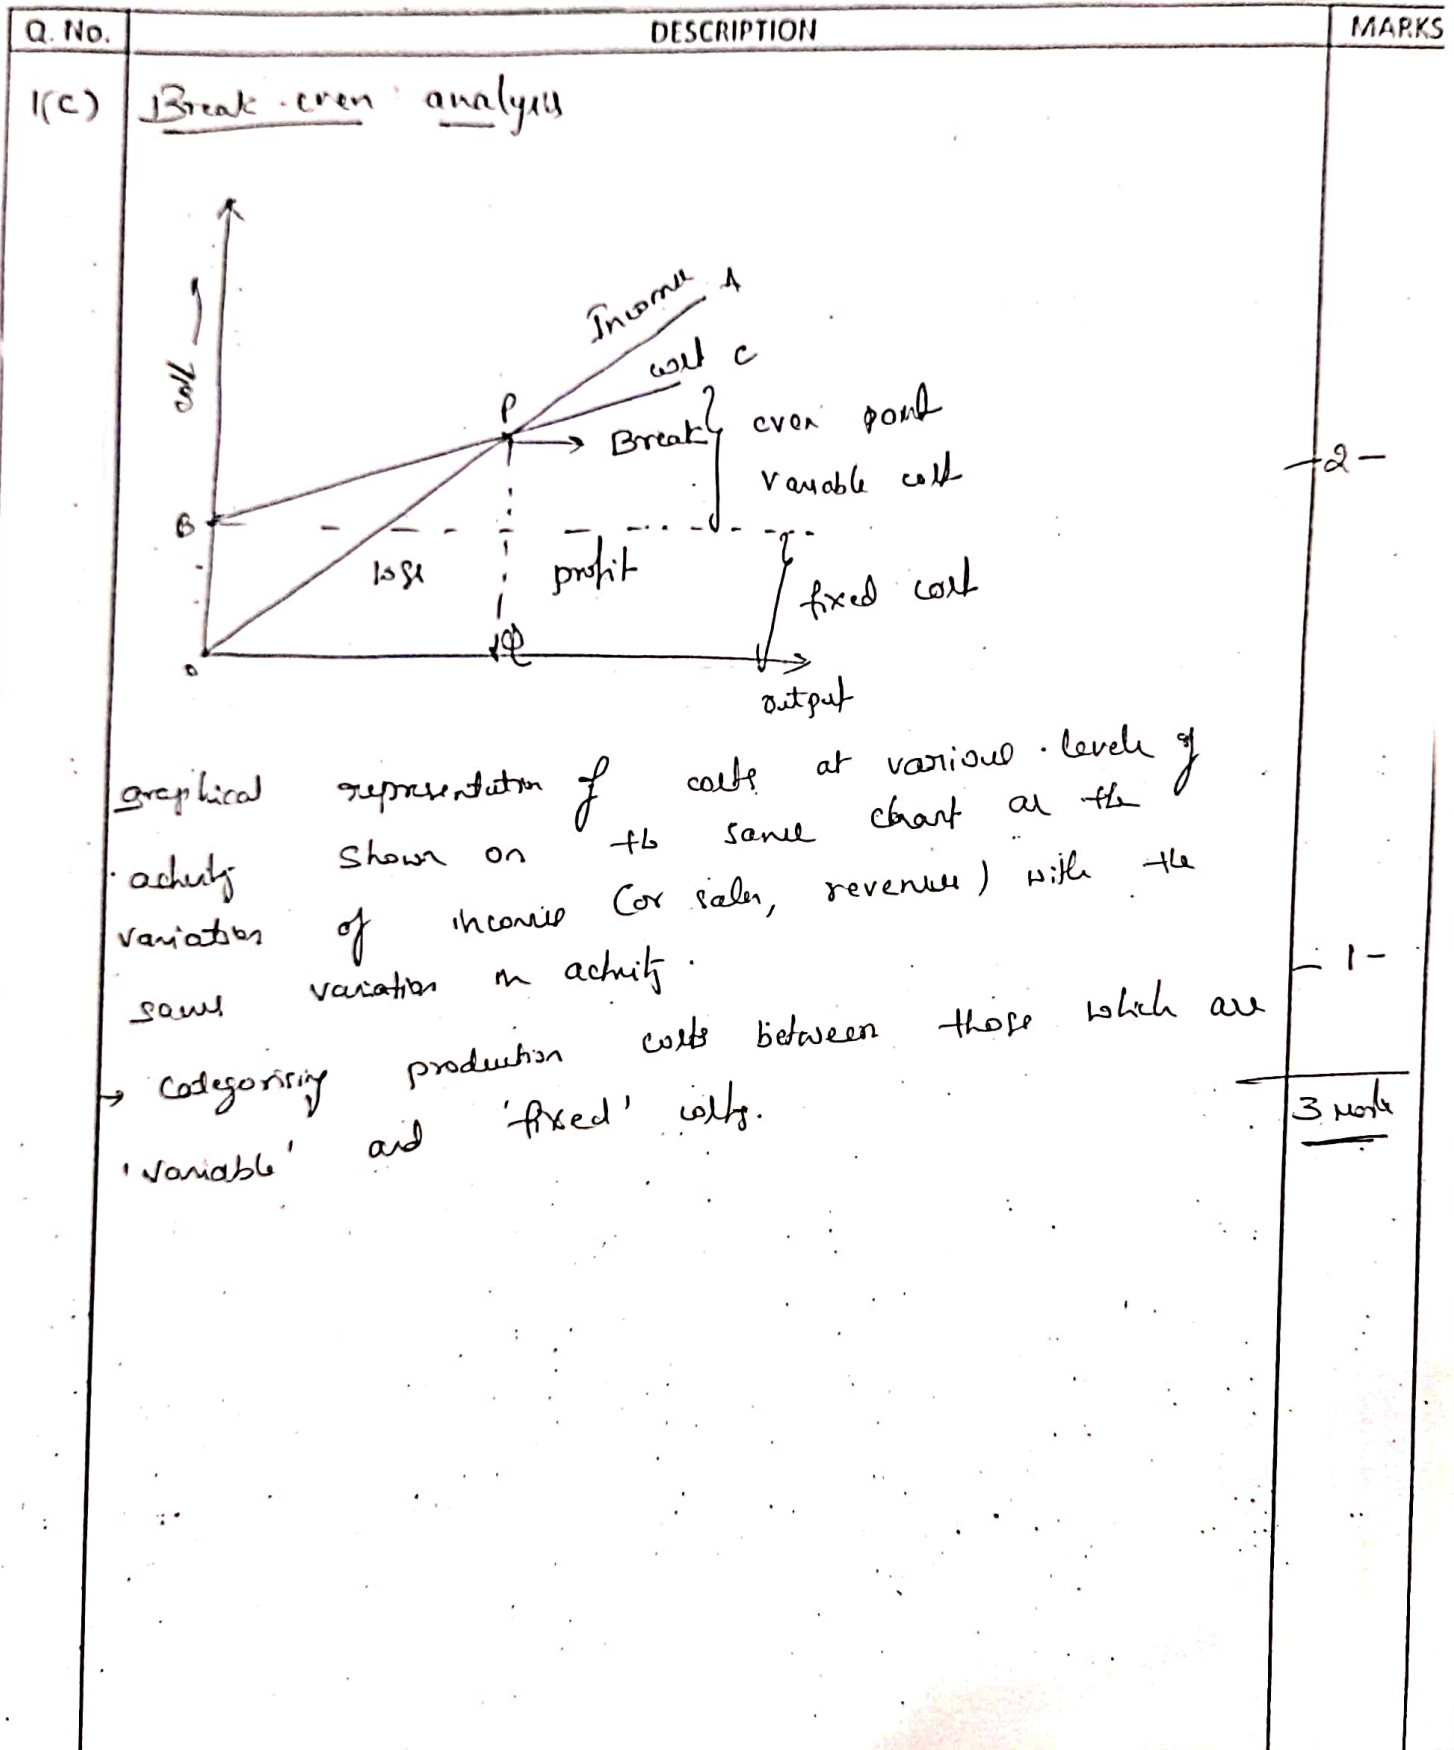 Q. No. DESCRIPTION MARKS
1(C) Break-even analysis
Income A
cost C
P
Break even point
Variable cost
-2-
B
loss profit
fixed cost
O Q
output
graphical representation of costs at various levels of
activity shown on the same chart as the
variation of income (or sales, revenue) with the
same variation in activity.
-1-
→ Categorising production costs between those which are
'variable' and 'fixed' costs.
3 Marks